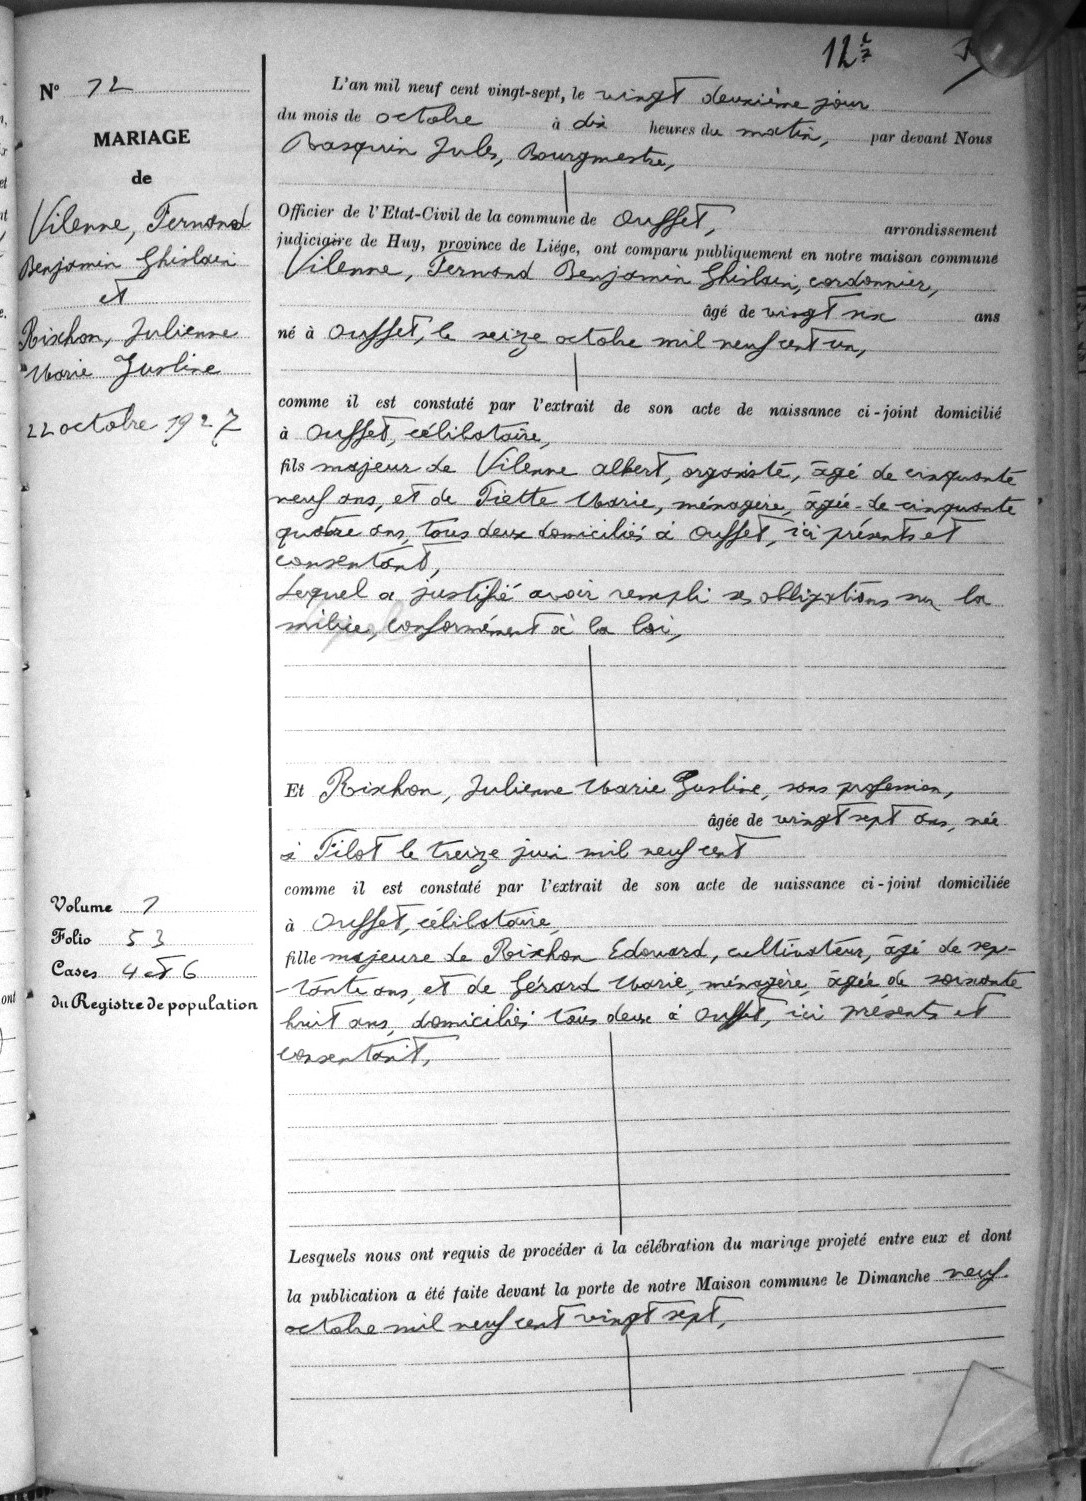 12
N° 12
MARIAGE
de
Vilenne, Fernand
Benjamin Ghislain
et
Rixhon, Julienne
Marie Justine
22 octobre 1927
Volume 1
Folio 53
Cases 4 et 6
du Registre de population
L'an mil neuf cent vingt-sept, le vingt deuxième jour
du mois de octobre à dix heures du matin, par devant Nous
Jules, Bourgmestre,
Officier de l'Etat-Civil de la commune de Ouffet, arrondissement
judiciaire de Huy, province de Liége, ont comparu publiquement en notre maison commune
Vilenne, Fernand Benjamin Ghislain, cordonnier,
âgé de vingt six ans
né à Ouffet, le seize octobre mil neuf cent un,
comme il est constaté par l'extrait de son acte de naissance ci-joint domicilié
à Ouffet, célibataire,
fils majeur de Vilenne Albert, organiste, âgé de cinquante
neuf ans, et de Fiette Marie, ménagère, âgée de cinquante
quatre ans, tous deux domiciliés à Ouffet, ici présents et
consentant,
Lequel a justifié avoir rempli ses obligations sur la
milice, conformément à la loi,
Et Rixhon, Julienne Marie Justine, sans profession,
âgée de vingt sept ans, née
à Filot le treize juin mil neuf cent
comme il est constaté par l'extrait de son acte de naissance ci-joint domiciliée
à Ouffet, célibataire,
fille majeure de Rixhon Edouard, cultivateur, âgé de sep-
-tante ans, et de Gérard Marie, ménagère, âgée de soixante
huit ans, domiciliés tous deux à Ouffet, ici présents et
consentant,
Lesquels nous ont requis de procéder à la célébration du mariage projeté entre eux et dont
la publication a été faite devant la porte de notre Maison commune le Dimanche neuf
octobre mil neuf cent vingt sept,